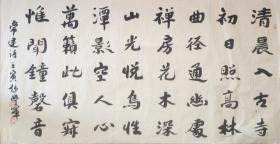 清晨入古寺
初日照高林
曲径通幽處
禅房花木深
山光悦鳥性
潭影空人心
萬籟此俱寂
惟聞鐘磬音
常建诗壬寅